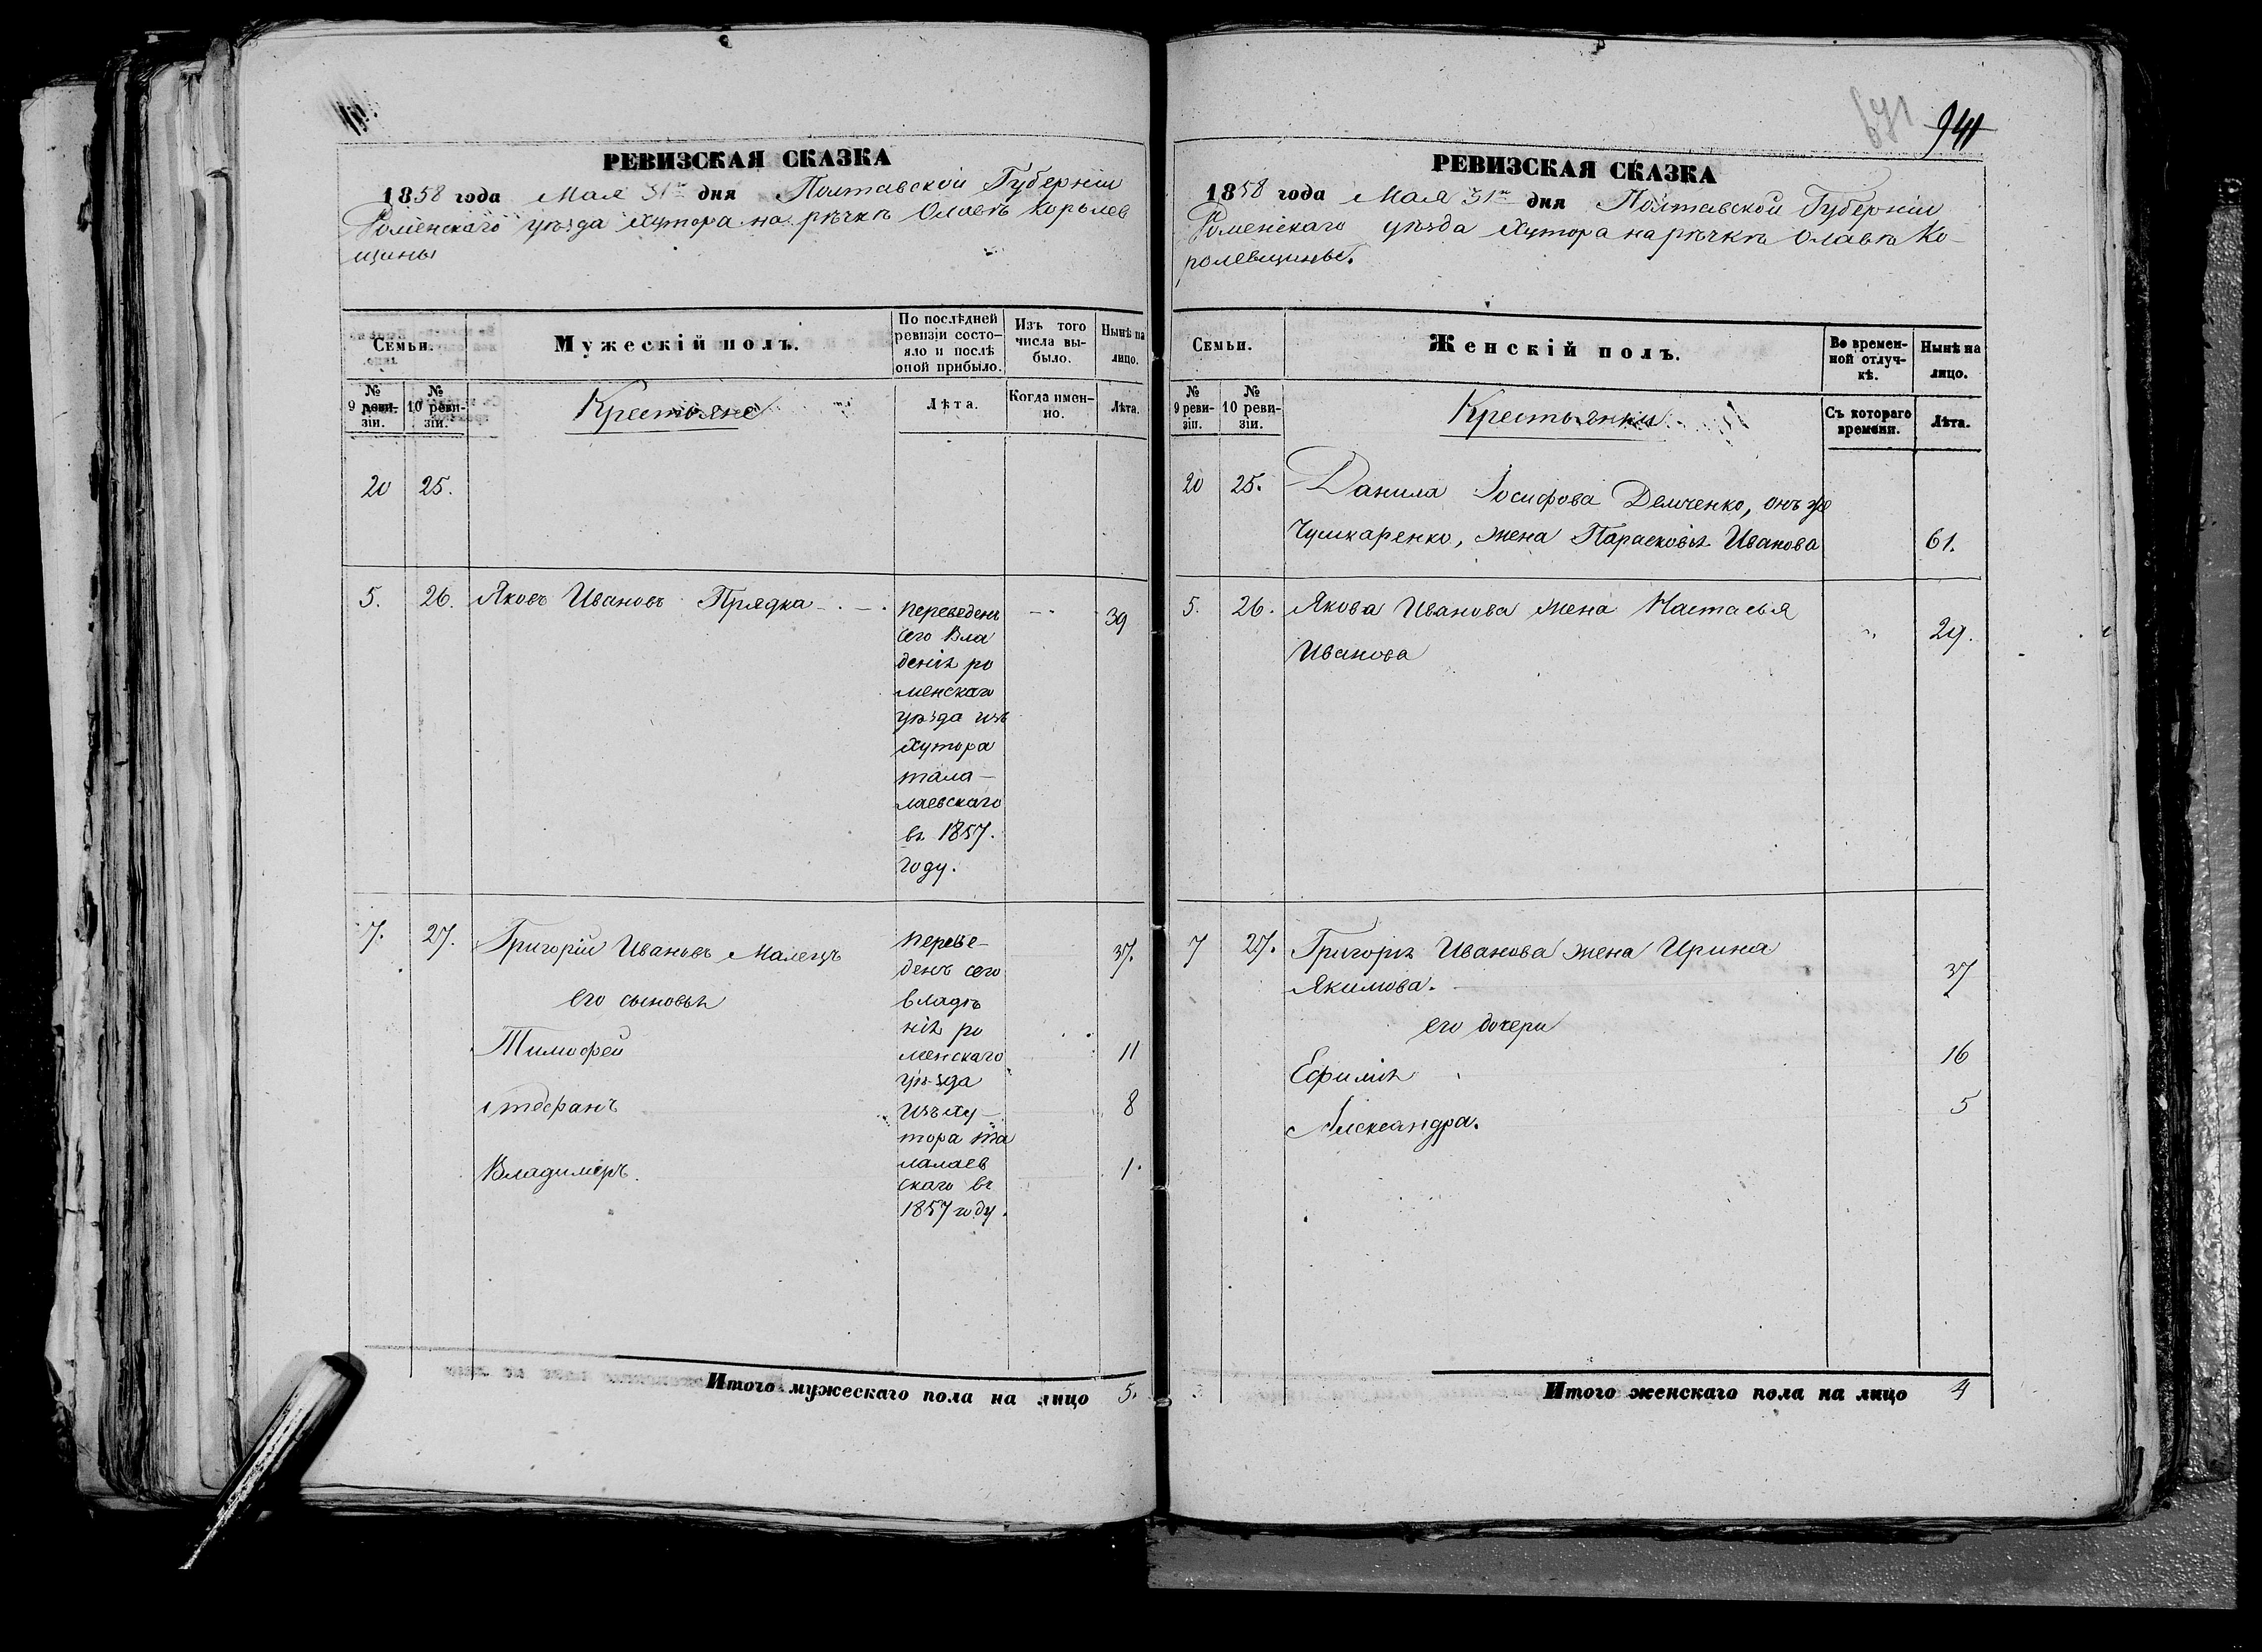 РЕВИЗСКАЯ СКАЗКА
1858 года Мая 31го дня Полтавской Губерніи
Роменскаго уѣзда Хутора на рѣчкѣ Олавѣ Королев
щины
Семьи.
Мужескій полъ.
По послѣдней ревизіи состояло и послѣ оной прибыло.
Изъ того числа выбыло.
Нынѣ на лицо.
№ 9 ревизіи.
№ 10 ревизіи.
Крестьяне
Лѣта.
Когда именно.
Лѣта.
20 25.
5. 26. Яковъ Ивановъ Прядка 39
переведенъ
сего вла
денія ро
менскаго
уѣзда изъ
хутора
тала-
лаевскаго
въ 1857.
году.
7. 27. Григорій Ивановъ Малецъ 37.
его сыновья
Тимофей 11
Стефанъ 8
Владимеръ. 1.
переве-
денъ сего
владѣ
нія ро
менскаго
уѣзда
изъ ху-
тора та
лалаев
скаго въ
1857 году.
Итого мужескаго пола на лицо 5.
941
РЕВИЗСКАЯ СКАЗКА
1858 года Мая 31го дня Полтавской Губерніи
Роменскаго уѣзда Хутора на рѣчкѣ Олавѣ Ко-
ролевщины.
Семьи.
Женскій полъ.
Во временной отлучкѣ.
Нынѣ на лицо.
№ 9 ревизіи.
№ 10 ревизіи.
Крестьянки
Съ котораго времени.
Лѣта.
20 25. Данила Іосифова Демченко, онъ же
Чумкаренко, жена Парасковія Иванова 61.
5. 26. Якова Иванова жена Настасья 29.
Иванова
7 27. Григорія Иванова жена Ирина
Якимова. 37
его дочери
Ефимія 16
Александра. 5
Итого женскаго пола на лицо 4